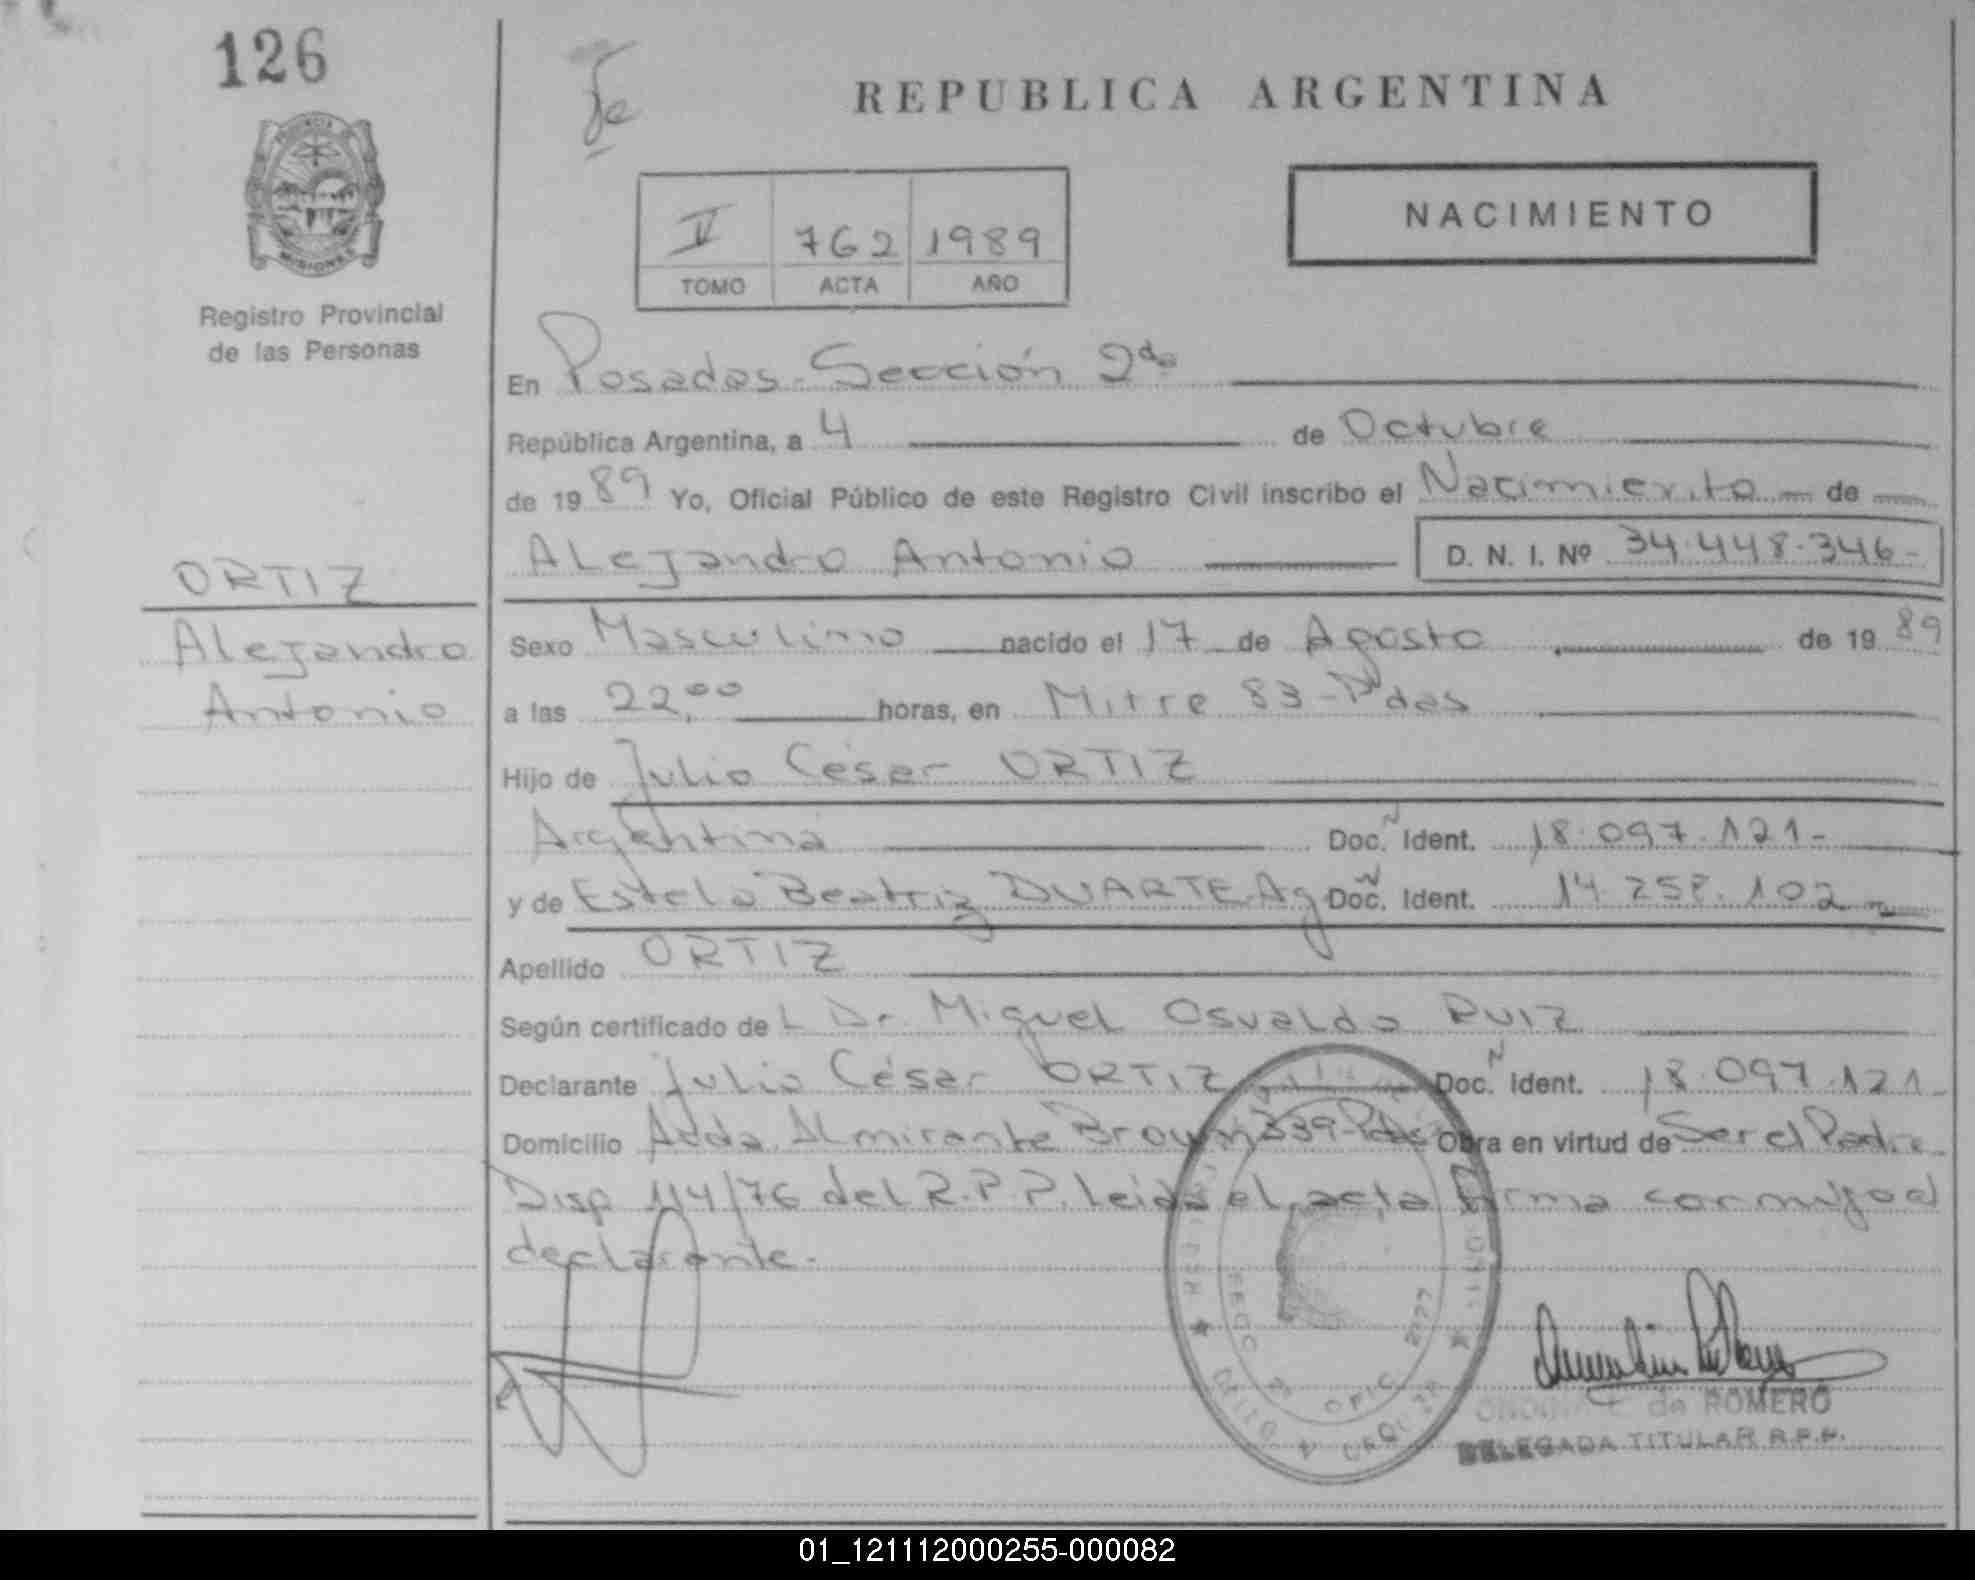 126
PROVINCIA DE
MISIONES
Registro Provincial
de las Personas
REPUBLICA ARGENTINA
NACIMIENTO
762 1989
TOMO ACTA AÑO
En Posadas - Sección 2da
República Argentina, a 4 de Octubre
de 19 89 Yo, Oficial Público de este Registro Civil inscribo el Nacimiento de
Alejandro Antonio D. N. I. Nº 34.448.346-
ORTIZ
Alejandro
Antonio
Sexo Masculino nacido el 17 de Agosto de 19 89
a las 22,00 horas, en Mitre 83 - Pdas
Hijo de Julio César ORTIZ
Argentina Doc. N Ident. 18.097.121-
y de Estela Beatriz DUARTE Ag Doc. N Ident. 14.258.102
Apellido ORTIZ
Según certificado de L Dr. Miguel Osvaldo RUIZ
Declarante Julio César ORTIZ Doc. N Ident. 18.097.121
Domicilio Avda. Almirante Brown 339-Pdas Obra en virtud de Ser el Padre
Disp 114/76 del R.P.P. Leida el acta firma conmigo el
declarante.
SECC 2ª OFIC 2777
URQUIZA
de ROMERO
DELEGADA TITULAR R.P.P.
01_121112000255-000082